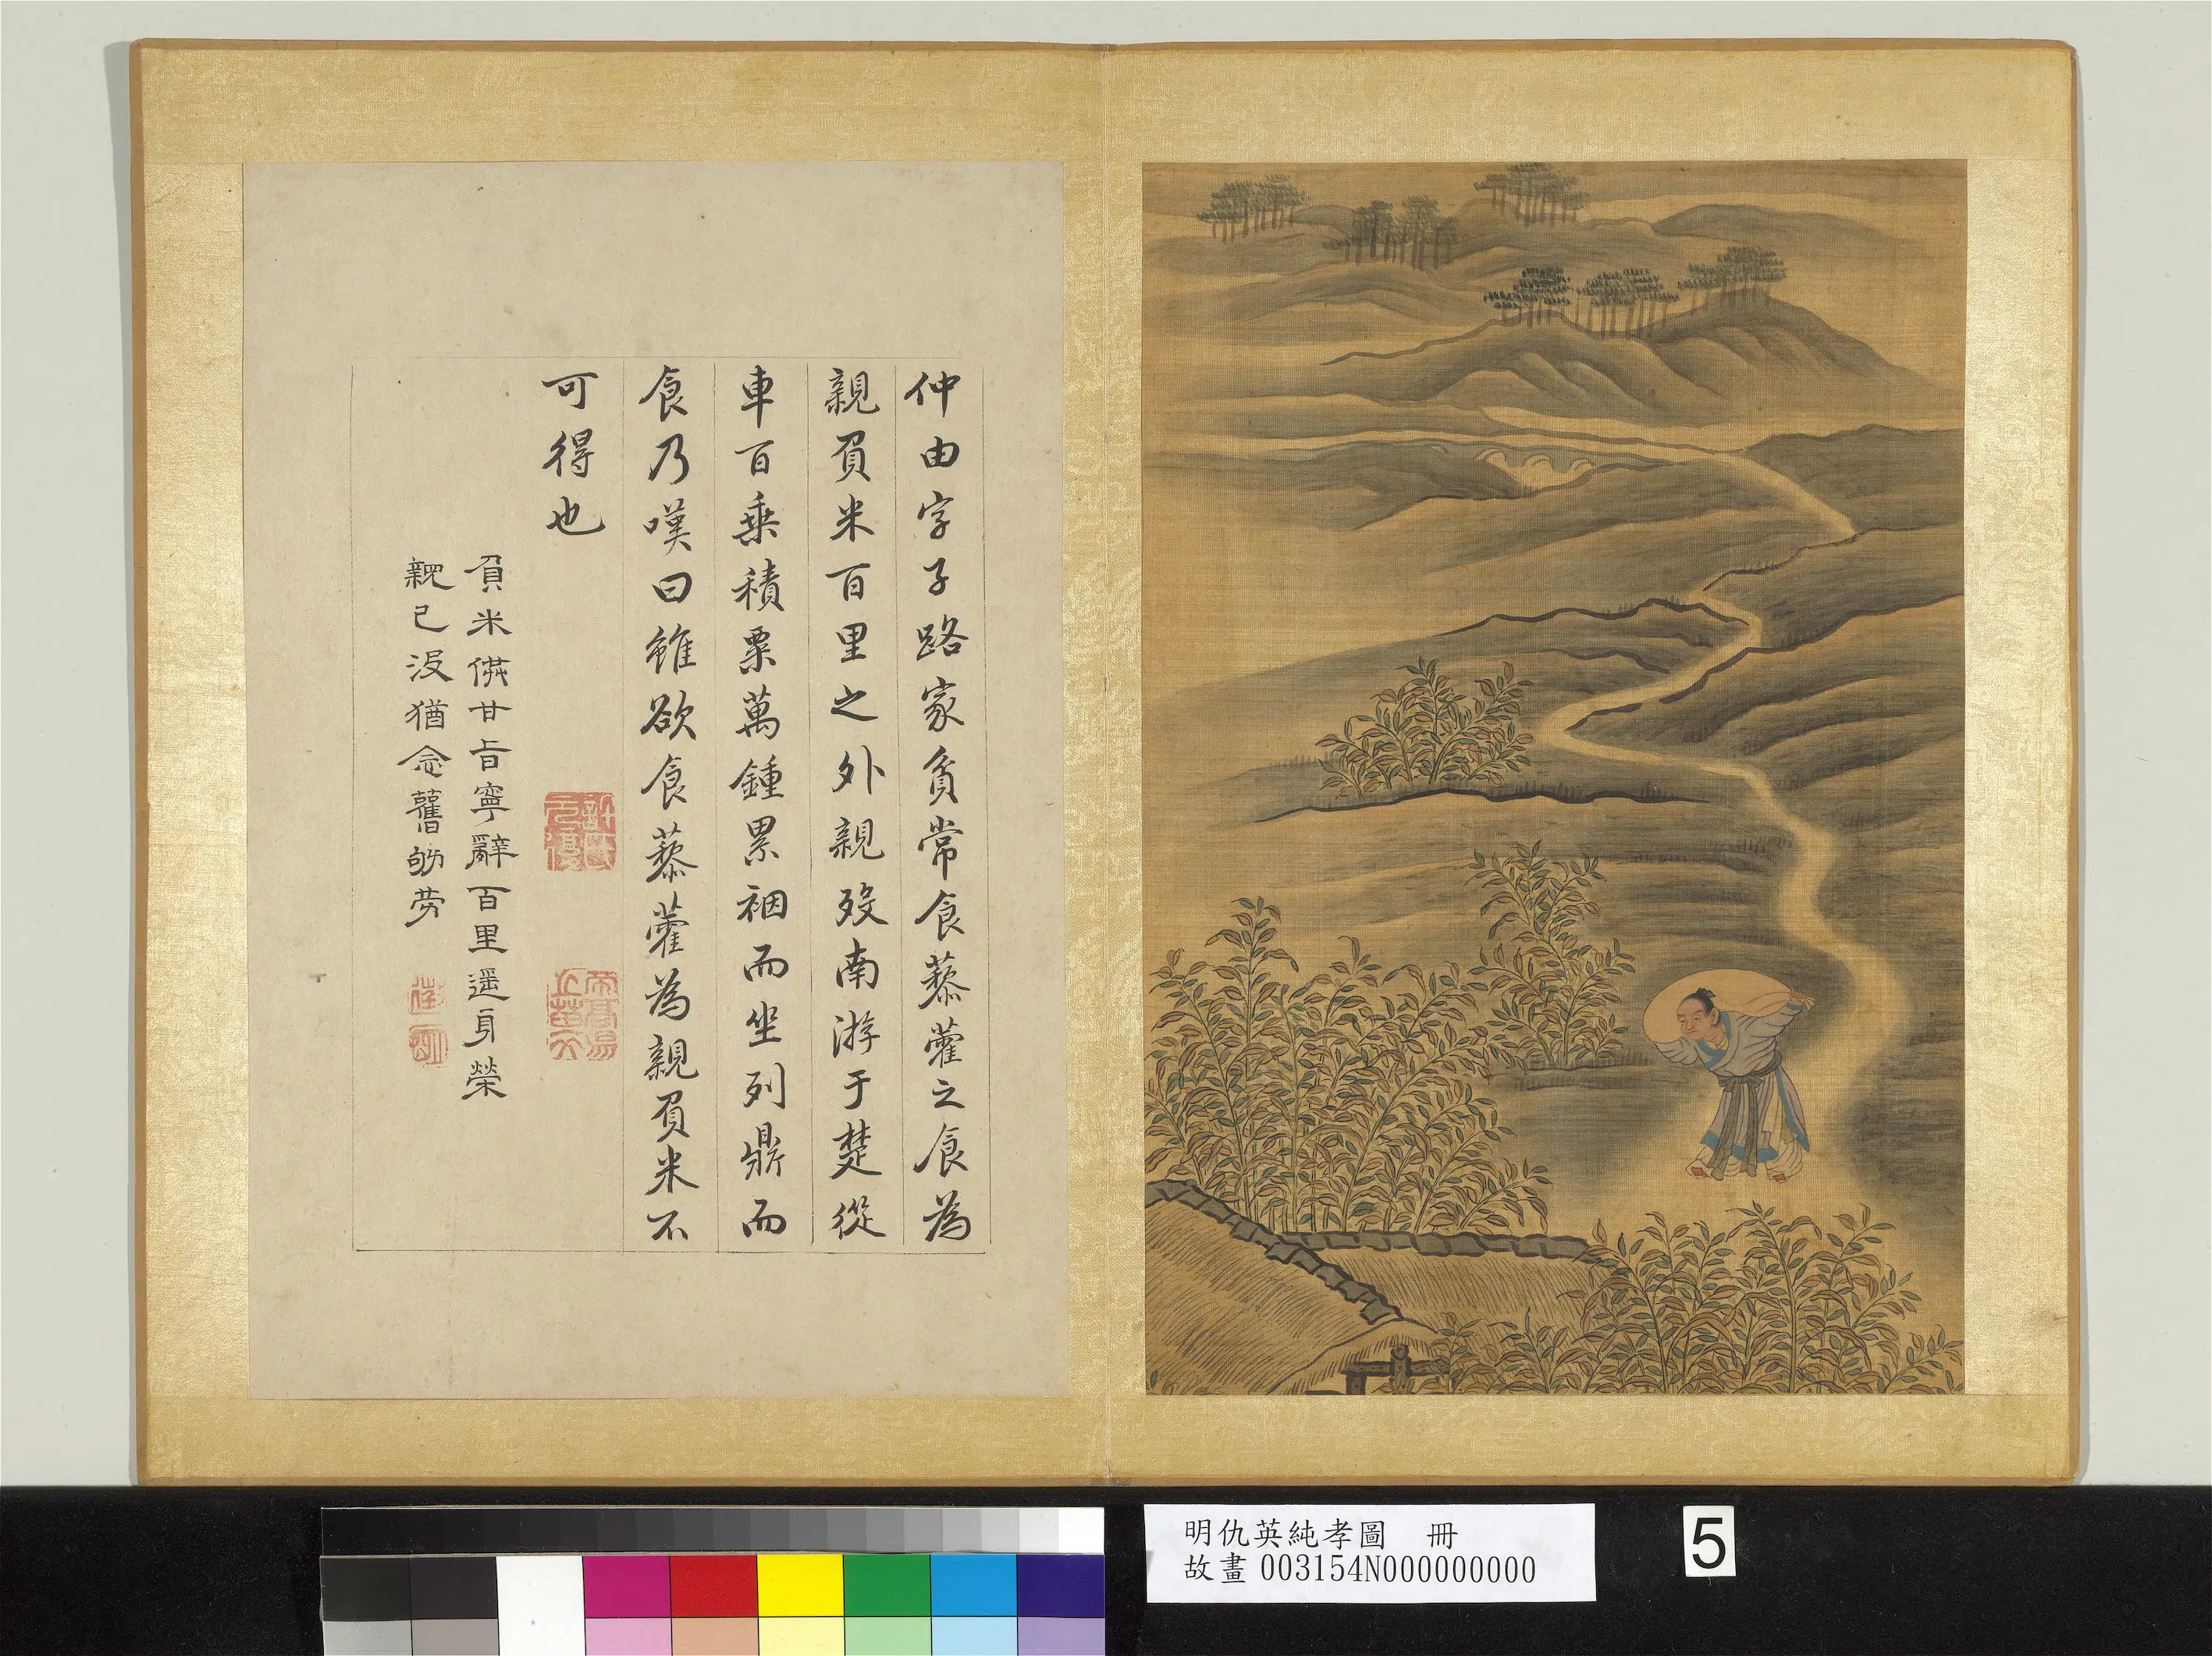 仲由字子路家貧常食藜藿之食為
親負米百里之外親歿南游于楚從
車百乗積粟萬鍾累裀而坐列鼎而
食乃嘆曰雖欲食藜藿為親負米不
可得也
負米供甘旨寧辭百里遥身榮
親已没猶念舊劬勞
明仇英純孝圖 冊
故畫003154N000000000
5